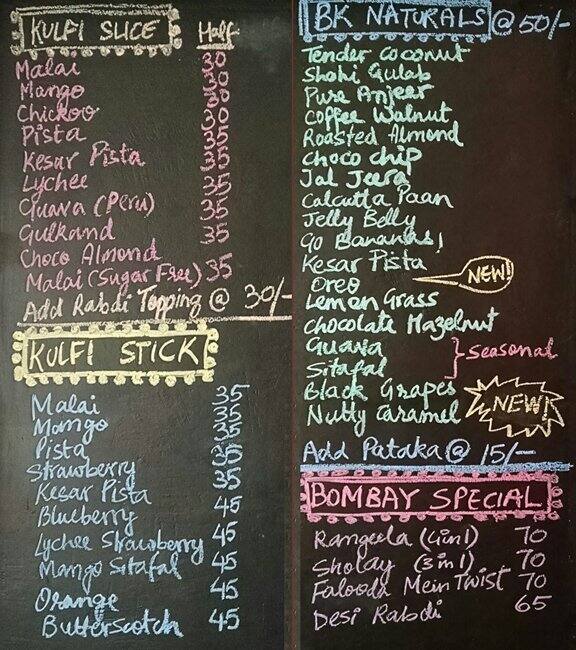 KULFI SLICE Half
Malai 30
Mango 30
Chickoo 30
Pista 30
Kesar Pista 35
Lychee 35
Guava (Peru) 35
Gulkand 35
Choco Almond 35
Malai (Sugar Free) 35
Add Rabdi Topping @ 30/-
KULFI STICK
Malai 35
Mango 35
Pista 35
Strawberry 35
Kesar Pista 35
Blueberry 45
Lychee Strawberry 45
Mango Sitafal 45
Orange 45
Butterscotch 45
BK NATURALS @ 50/-
Tender Coconut
Shahi Gulab
Pure Anjeer
Coffee Walnut
Roasted Almond
Choco chip
Jal Jeera
Calcutta Paan
Jelly Belly
Go Bananas!
Kesar Pista
Oreo NEW!
Lemon Grass
Chocolate Hazelnut
Guava
Sitafal } Seasonal
Black Grapes
Nutty Caramel NEW!
Add Pataka @ 15/-
BOMBAY SPECIAL
Rangeela (4in1) 70
Sholay (3in1) 70
Falooda Mein Twist 70
Desi Rabdi 65